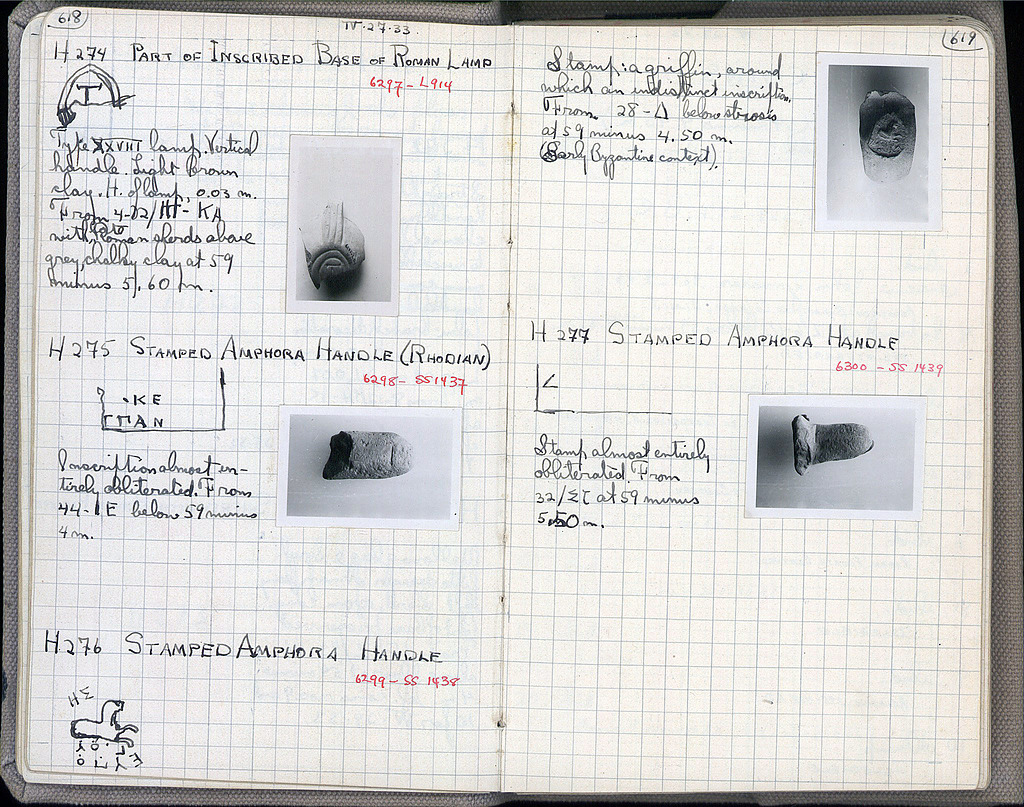 618
IV·27·33
H 274 PART OF INSCRIBED BASE OF ROMAN LAMP
6297 - L914
T
Type XXVIII lamp. Vertical
handle. Light brown
clay. H. of lamp, 0.03 m.
From
with late Roman sherds above
grey, chalky clay at 59
minus 5.60 m.
H 275 STAMPED AMPHORA HANDLE (RHODIAN)
6298 - SS 1437
·KE
ΠAN
Inscription almost en-
tirely obliterated. From
44-IE below 59 minus
4 m.
H 276 STAMPED AMPHORA HANDLE
6299 - SS 1438
619
Stamp: a griffin, around
which an indistinct inscription.
From 28-Δ below stosis
at 59 minus 4.50 m.
(Early Byzantine context).
H 277 STAMPED AMPHORA HANDLE
6300 - SS 1439
Stamp almost entirely
obliterated. From
32/ΣΤ at 59 minus
5.50 m.